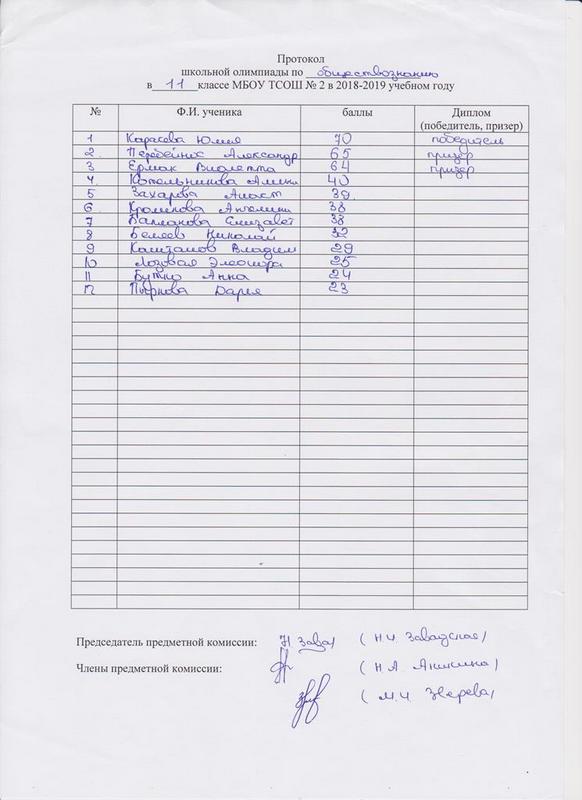 Протокол
школьной олимпиады по обществознанию
в 11 классе МБОУ ТСОШ № 2 в 2018-2019 учебном году
№ Ф.И. ученика баллы Диплом (победитель, призер)
1 Карасева Юлия 70 победитель
2 Перебейнос Александр 65 призер
3 Ермак Виолетта 64 призер
4 Котельникова Алина 40
5 Захарова Анаст 39
6 Кроликова Ангелина 38
7 Балманова Елизавет 38
8 Белеев Николай 32
9 Каштанов Владим 29
10 Лозовая Элеонора 25
11 Бутко Анна 24
12 Пырнова Дарья 23
Председатель предметной комиссии: (Н.И. Завадская)
Члены предметной комиссии: (Н.А. Аникина)
(М.И. Зверева)